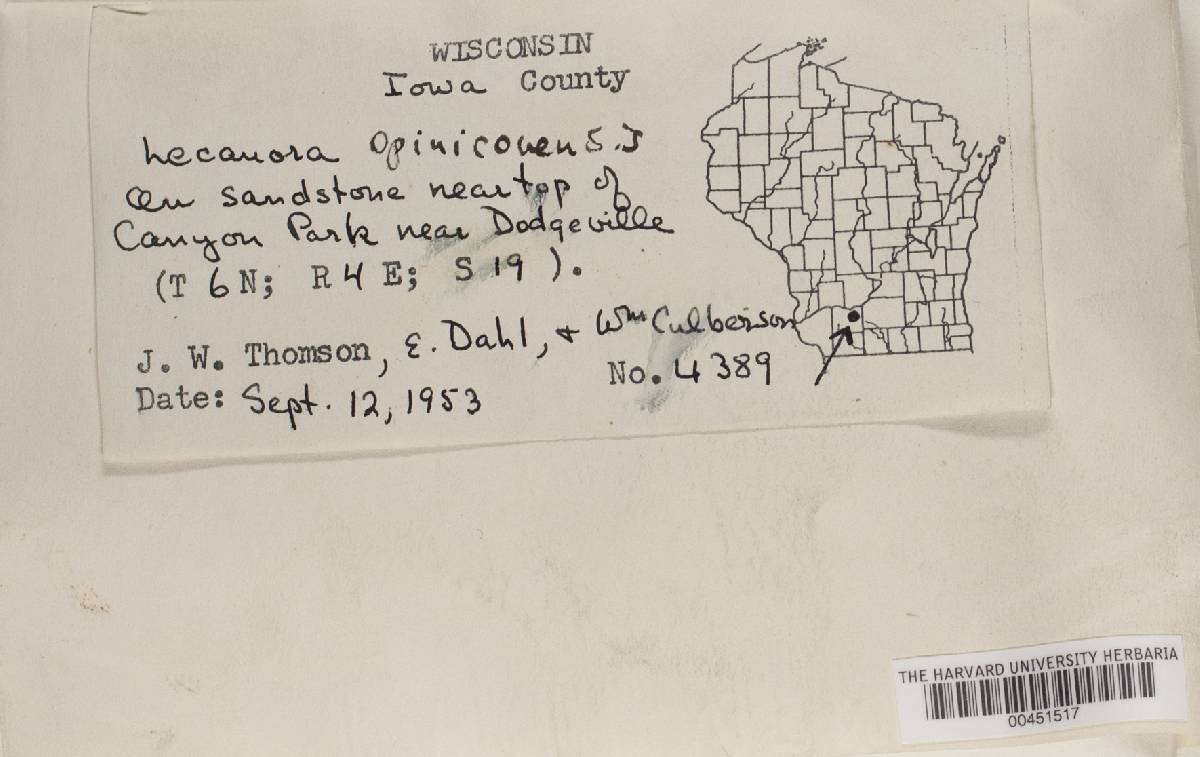 WISCONSIN
Iowa County
Lecanora Opiniconens.is
On sandstone near top of
Canyon Park near Dodgeville
(T 6 N; R 4 E; S 19 ).
J. W. Thomson, E. Dahl, & Wm Culberson
No. 4389
Date: Sept. 12, 1953
THE HARVARD UNIVERSITY HERBARIA
00451517